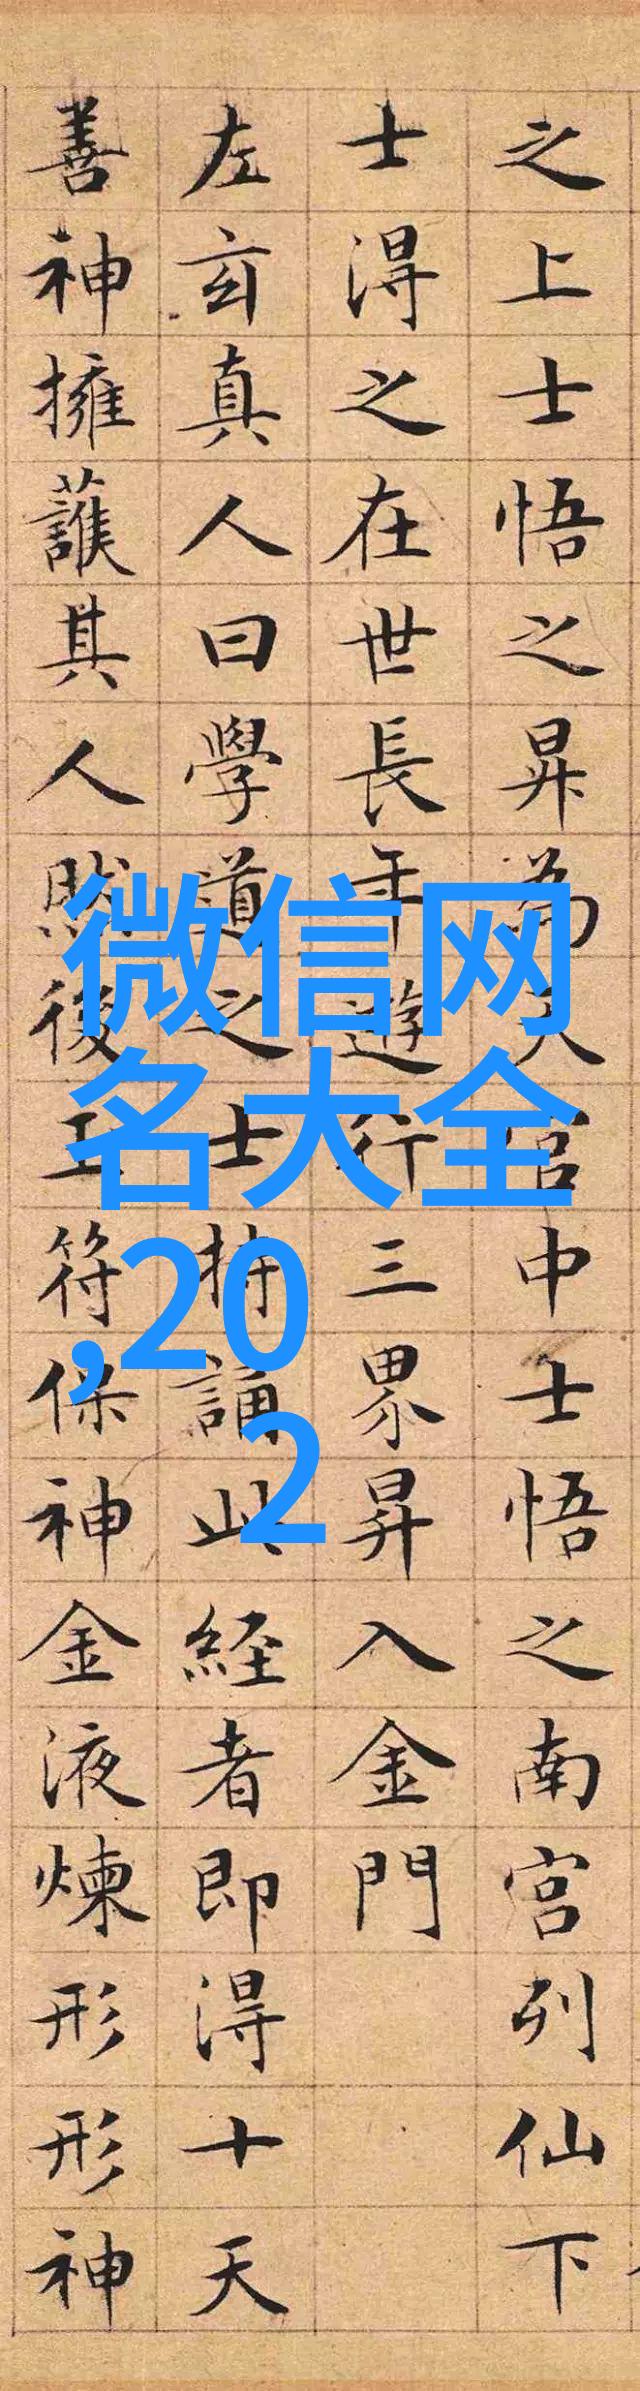 之上士悟之昇為天官中士悟之南宮列仙下
士得之在世長年遊行三界昇入金門
左玄真人曰學道之士持誦此經者即得十天
善神擁護其人然後玉符保神金液煉形形神
微信网
名大全
,20
2